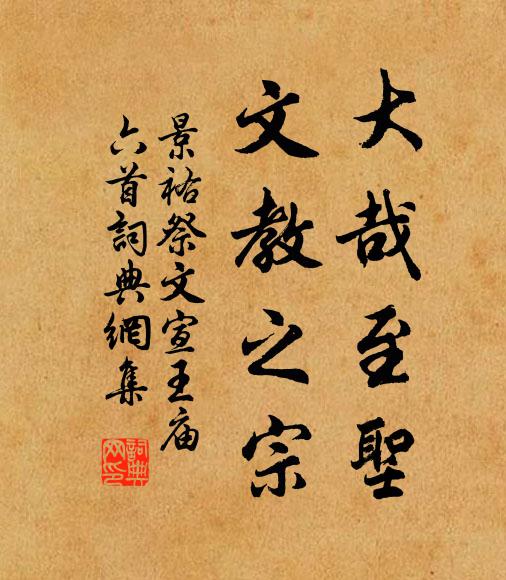 大哉至聖
文教之宗
景祐祭文宣王庙
六首詞典網集
詞典网印